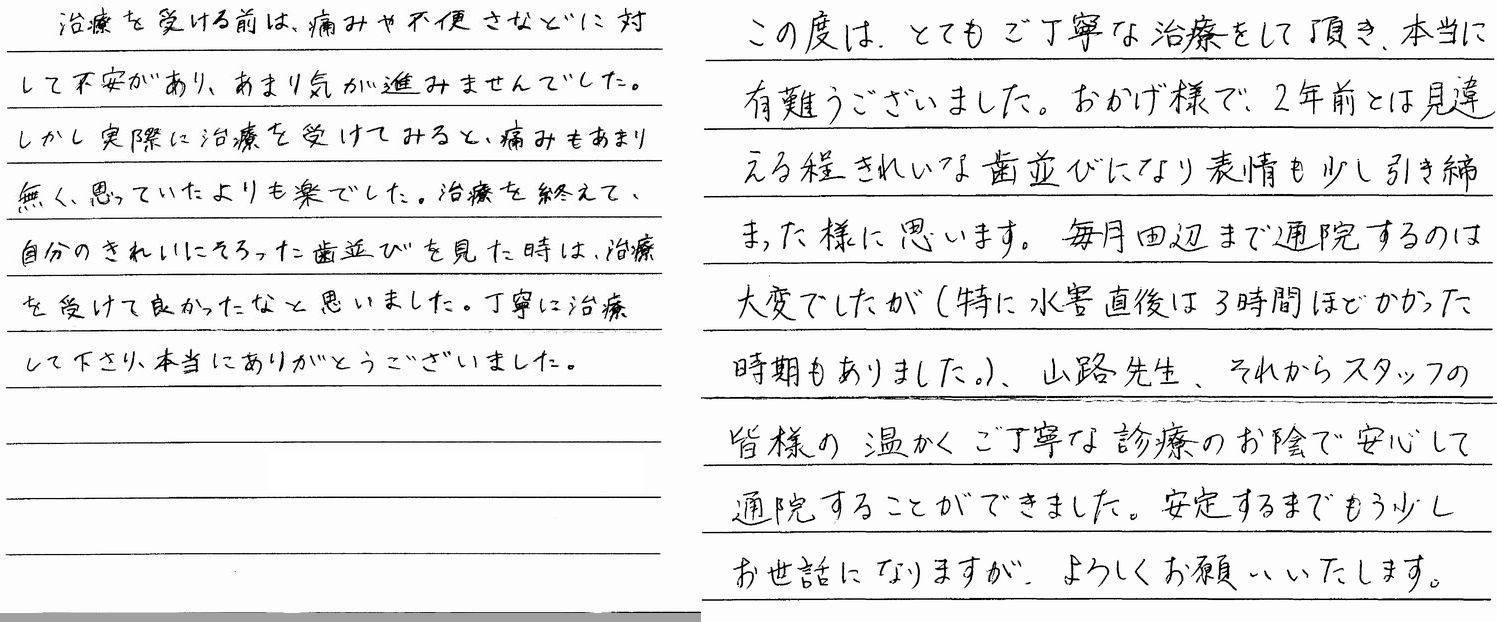 治療を受ける前は、痛みや不便さなどに対
して不安があり、あまり気が進みませんでした。
しかし実際に治療を受けてみると、痛みもあまり
無く、思っていたよりも楽でした。治療を終えて、
自分のきれいにそろった歯並びを見た時は、治療
を受けて良かったなと思いました。丁寧に治療
して下さり、本当にありがとうございました。
この度は、とてもご丁寧な治療をして頂き、本当に
有難うございました。おかげ様で、2年前とは見違
える程きれいな歯並びになり表情も少し引き締
まった様に思います。毎月田辺まで通院するのは
大変でしたが(特に水害直後は3時間ほどかかった
時期もありました。)、山路先生、それからスタッフの
皆様の温かくご丁寧な診療のお陰で安心して
通院することができました。安定するまでもう少し
お世話になりますが、よろしくお願いいたします。